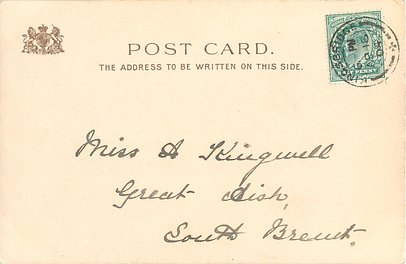 POST CARD.
THE ADDRESS TO BE WRITTEN ON THIS SIDE.
KINGSBRIDGE
PENNY
Miss A Kingwell
Great Aish,
South Brent.